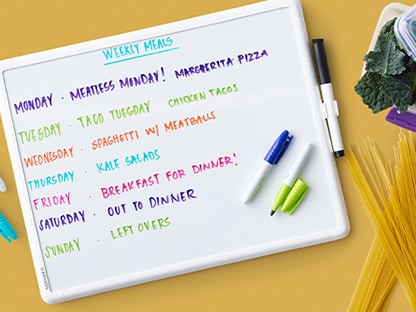 WEEKLY MEALS
MONDAY · MEATLESS MONDAY! MARGHERITA PIZZA
TUESDAY · TACO TUESDAY CHICKEN TACOS
WEDNESDAY · SPAGHETTI W/ MEATBALLS
THURSDAY · KALE SALADS
FRIDAY · BREAKFAST FOR DINNER!
SATURDAY · OUT TO DINNER
SUNDAY · LEFT OVERS